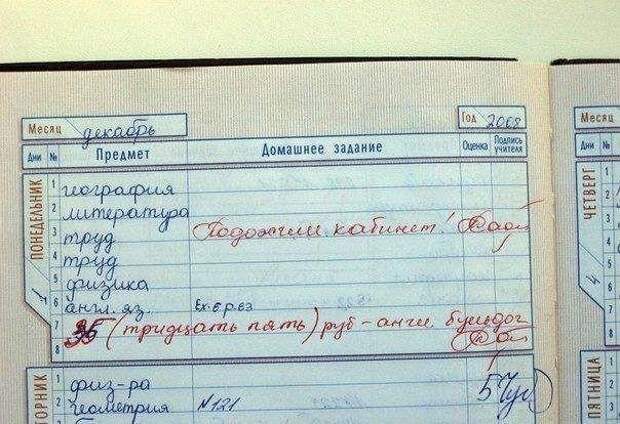 Месяц декабрь Год 2008
Дни № Предмет Домашнее задание Оценка Подпись учителя
ПОНЕДЕЛЬНИК
1
1 география
2 литература
3 труд Подожгли кабинет!
4 труд
5 физика
6 англ. яз. Ex. 6 p. 63
7 35 (тридцать пять) руб - англ. бульдог
8
ВТОРНИК
1 физ-ра
2 геометрия №121 5
Месяц
Дни №
ЧЕТВЕРГ
4
ПЯТНИЦА